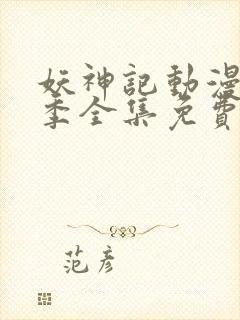 妖神記動漫
季全集免費
范彥